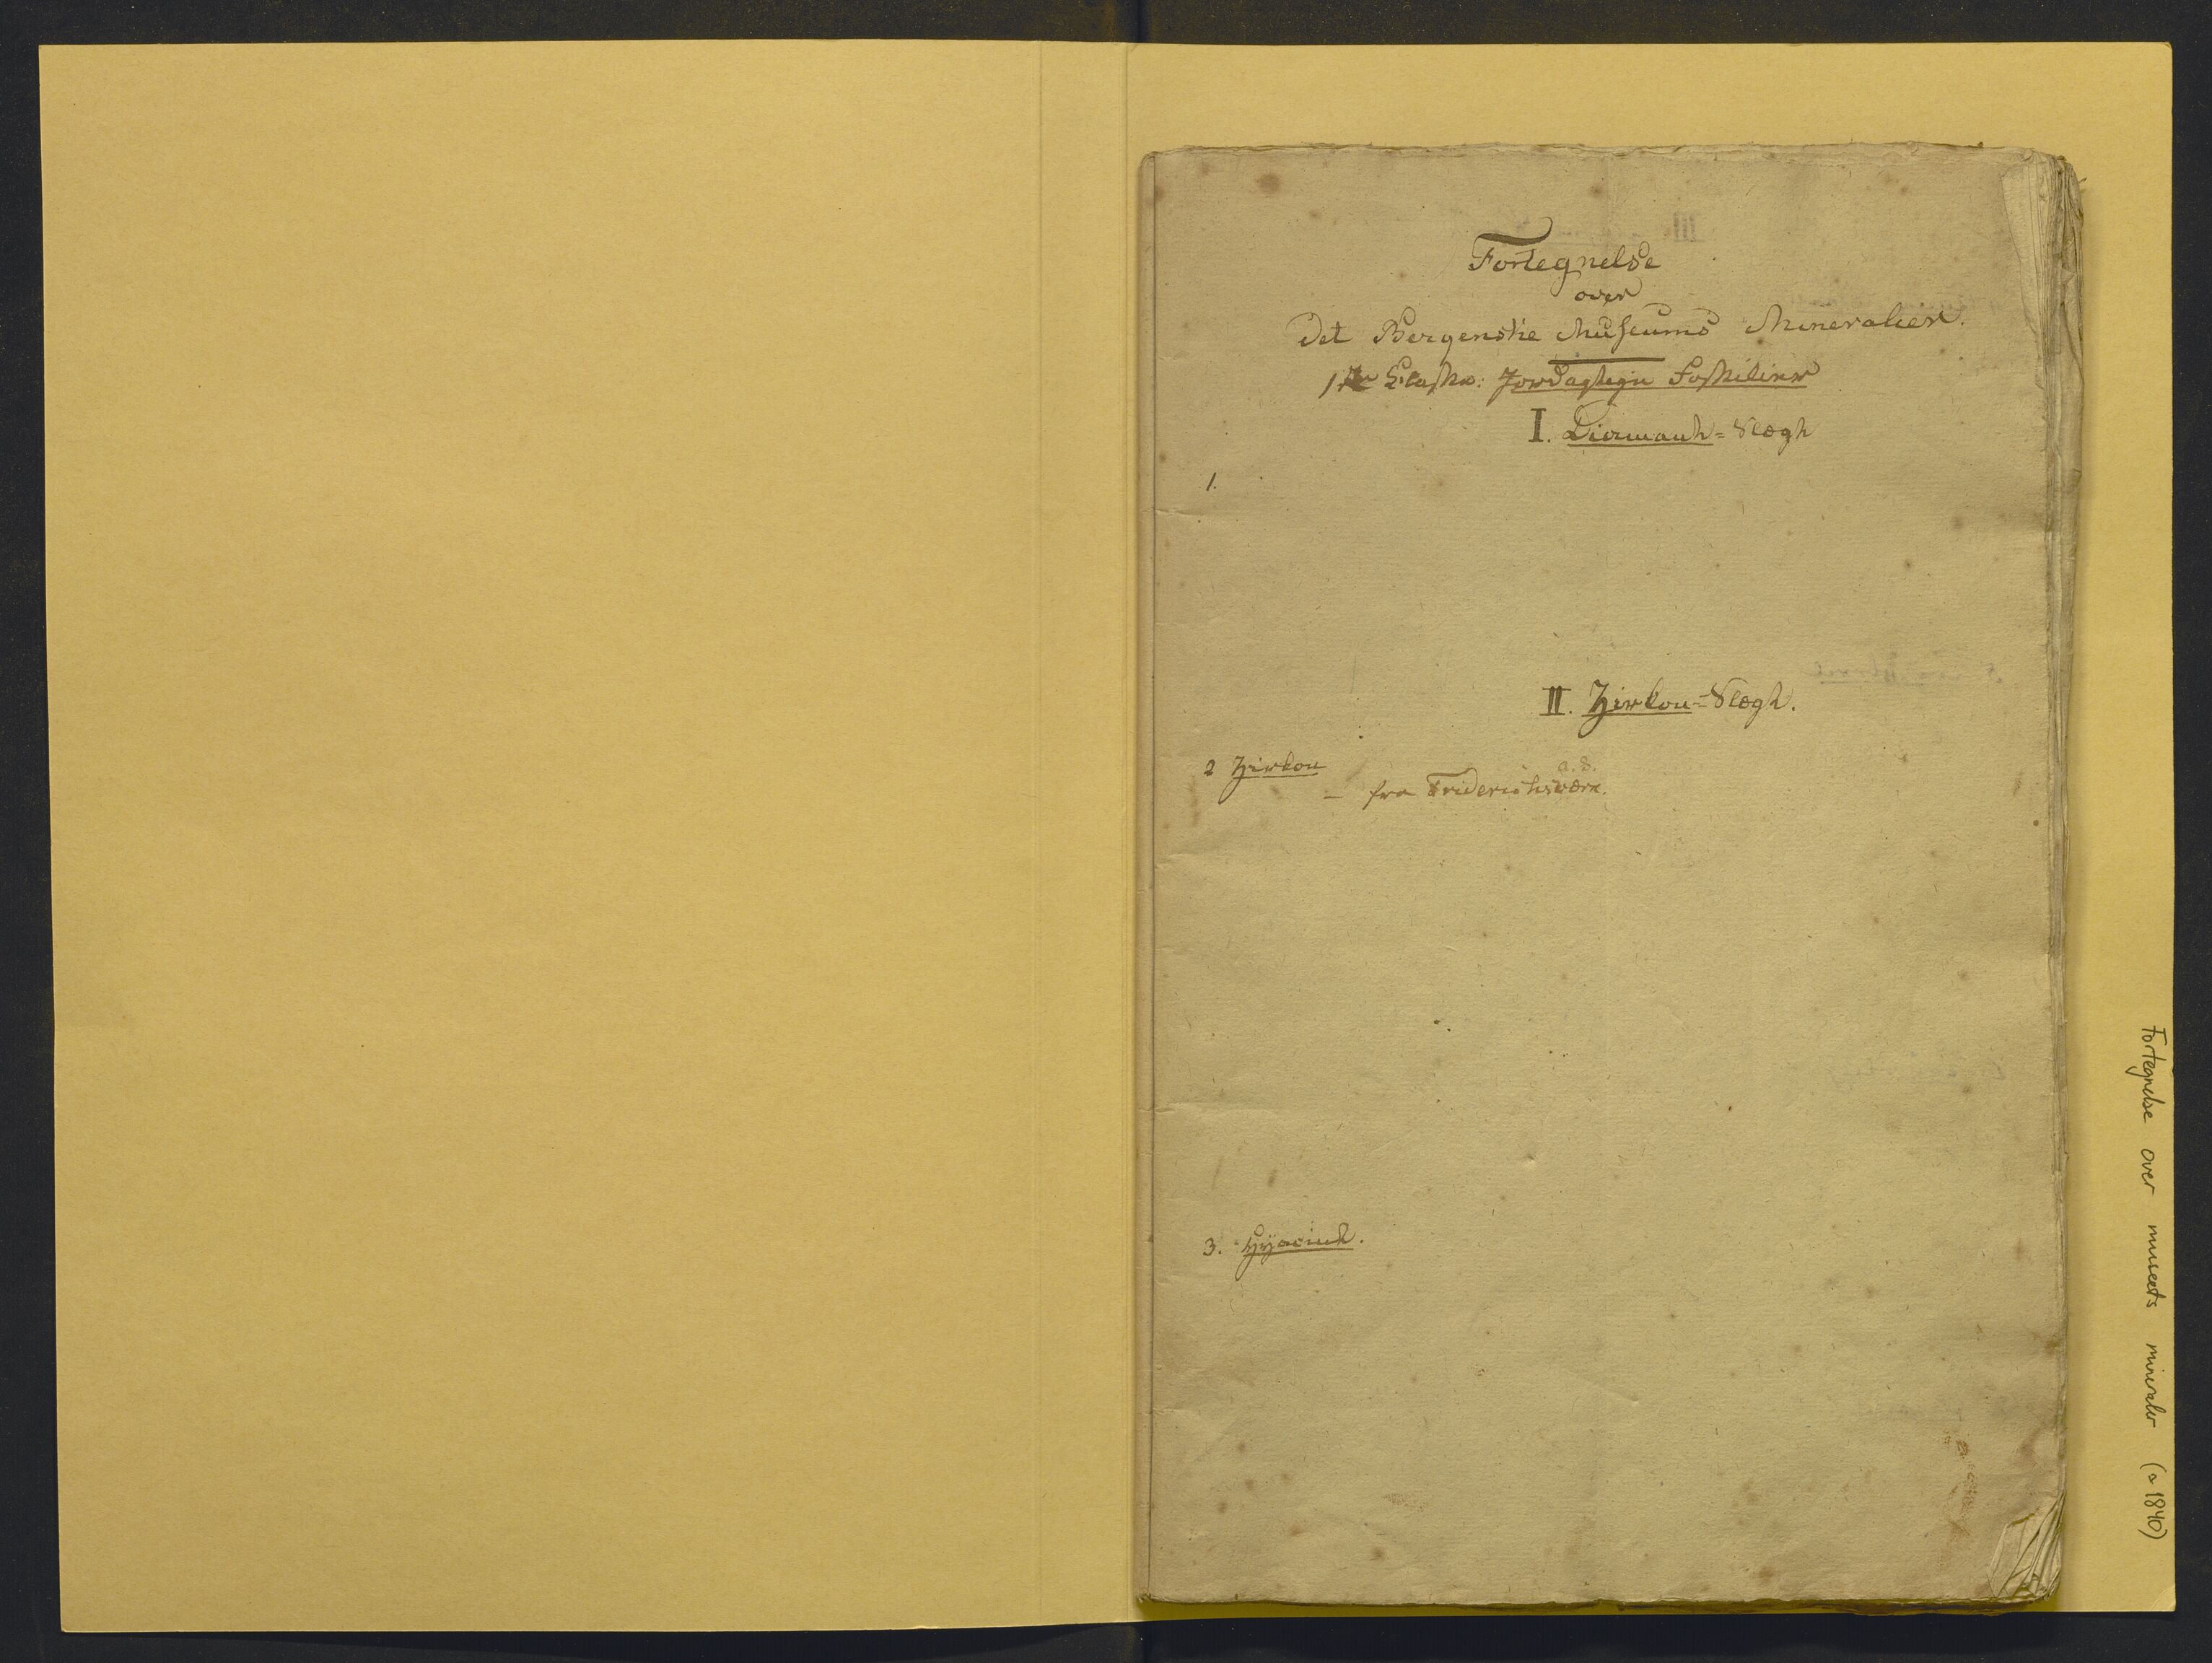 Fortegnelse
over
Det Bergenske Museums Mineralier.
1ste Classe: Jordagtige Fossilier
I. Diamant=Slægt
1.
II. Zirkon=Slægt.
2 Zirkon
a. d.
– fra Friderichsværn.
3. Hyacint.
Fortegnelse over museets mineraler (a 1840)